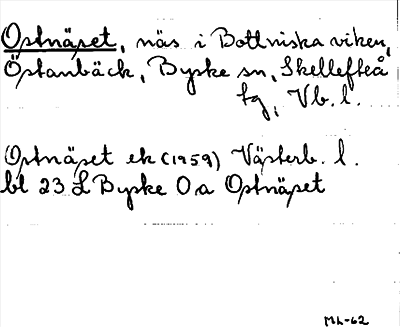 Ostnäset, näs i Bottniska viken,
Östanbäck, Byske sn, Skellefteå
tg, Vb. l.
Ostnäset ek (1959) Västerb. l.
bl 23 L Byske O a Ostnäset
ML-62